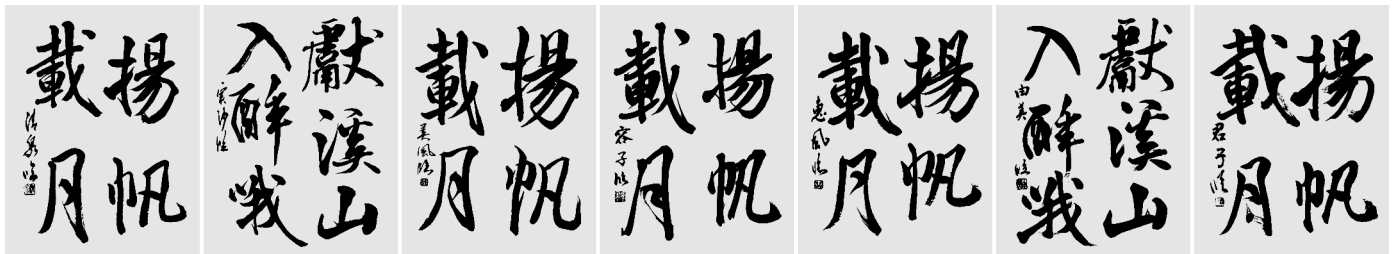 揚帆
載月
獻溪山
入醉哦
揚帆
載月
美風臨
揚帆
載月
容子臨
揚帆
載月
惠風臨
獻溪山
入醉哦
由美臨
揚帆
載月